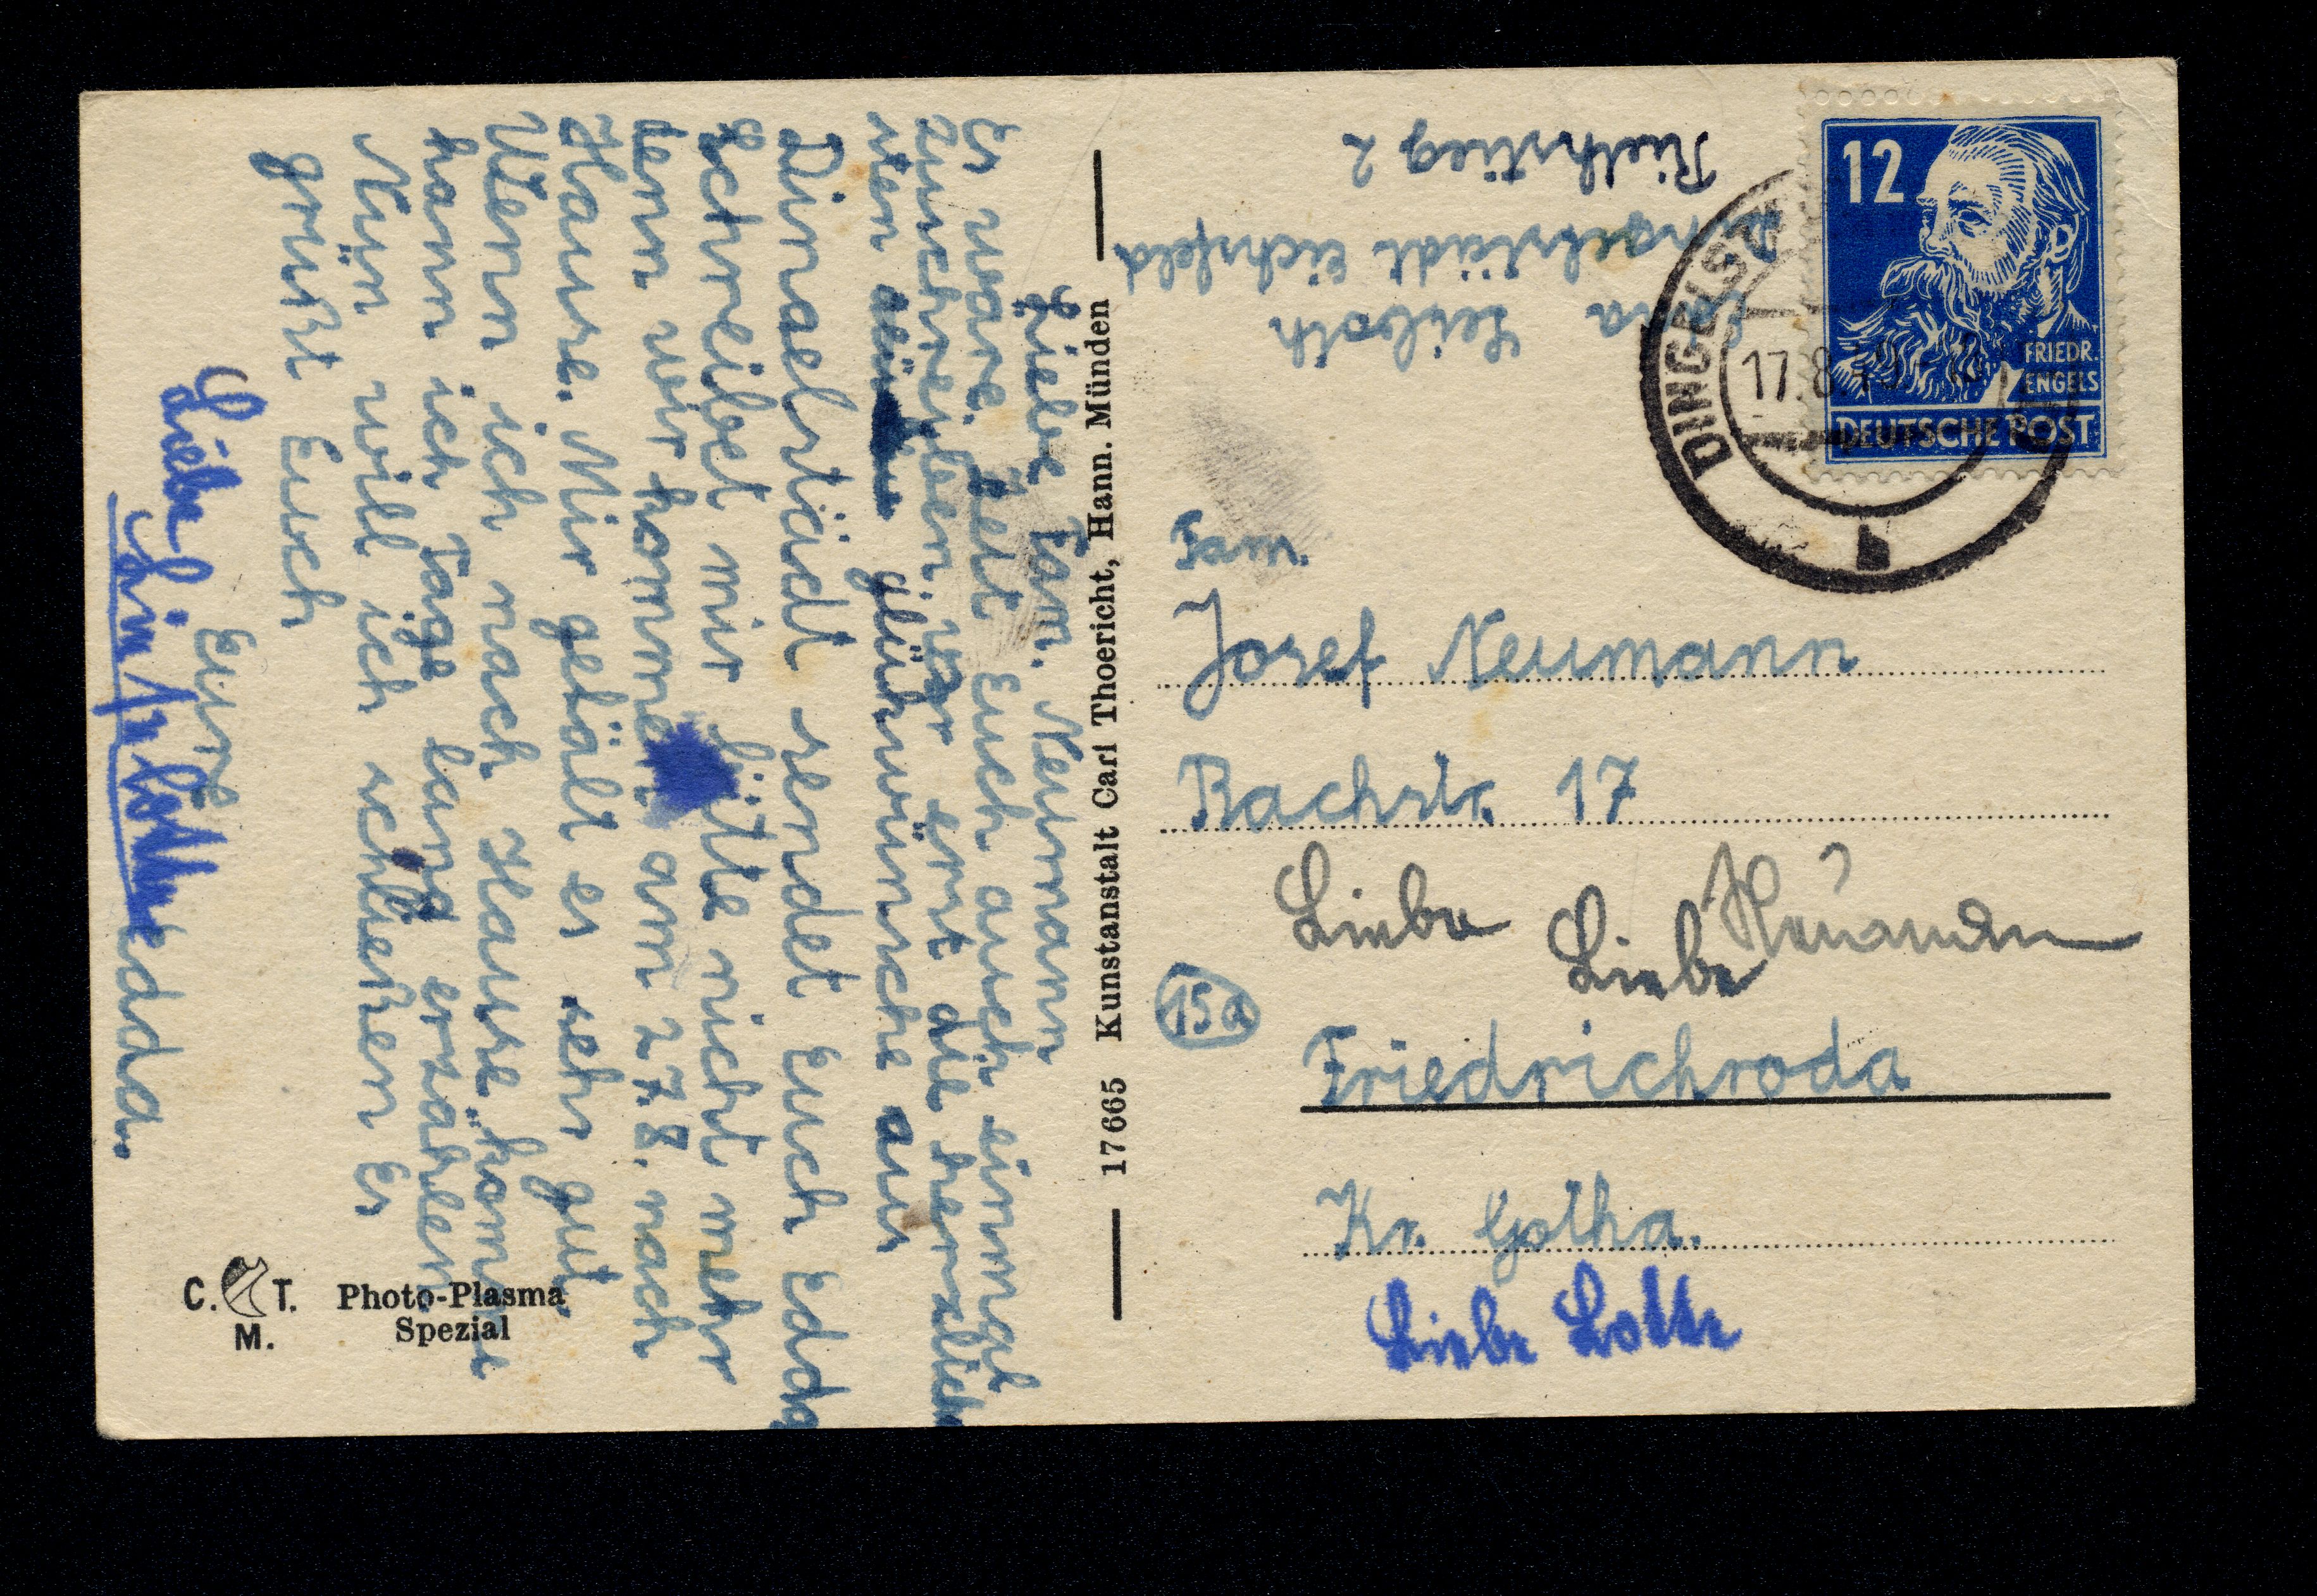 Liebe Fam. Neumann
Es wäre Zeit Euch auch einmal
zuschreiben. erst die herzlich
sten glühwünsche aus
Dingelstädt sendet Euch Edda
Schreibet mir bitte nicht mehr
denn wir kommen am 27.8. nach
Hause. Mir gefält es sehr gut.
Wenn ich nach Hause komme
kann ich Tage lang erzählen
Nun will ich schließen Es
grüßt Euch
Eure
Edda.
Liebe
Liebe Lotte
C. T.
M.
Photo-Plasma
Spezial
17665 Kunstanstalt Carl Thoericht, Hann. Münden
Leiboth
Dingelstädt Eichsfeld
Riethstieg 2
12
FRIEDR.
ENGELS
DEUTSCHE POST
DINGELST
17.8.49
b
Josef Neumann
Bachstr. 17
Liebe
Liebe
15a
Friedrichroda
Kr. Gotha.
Liebe Lotte